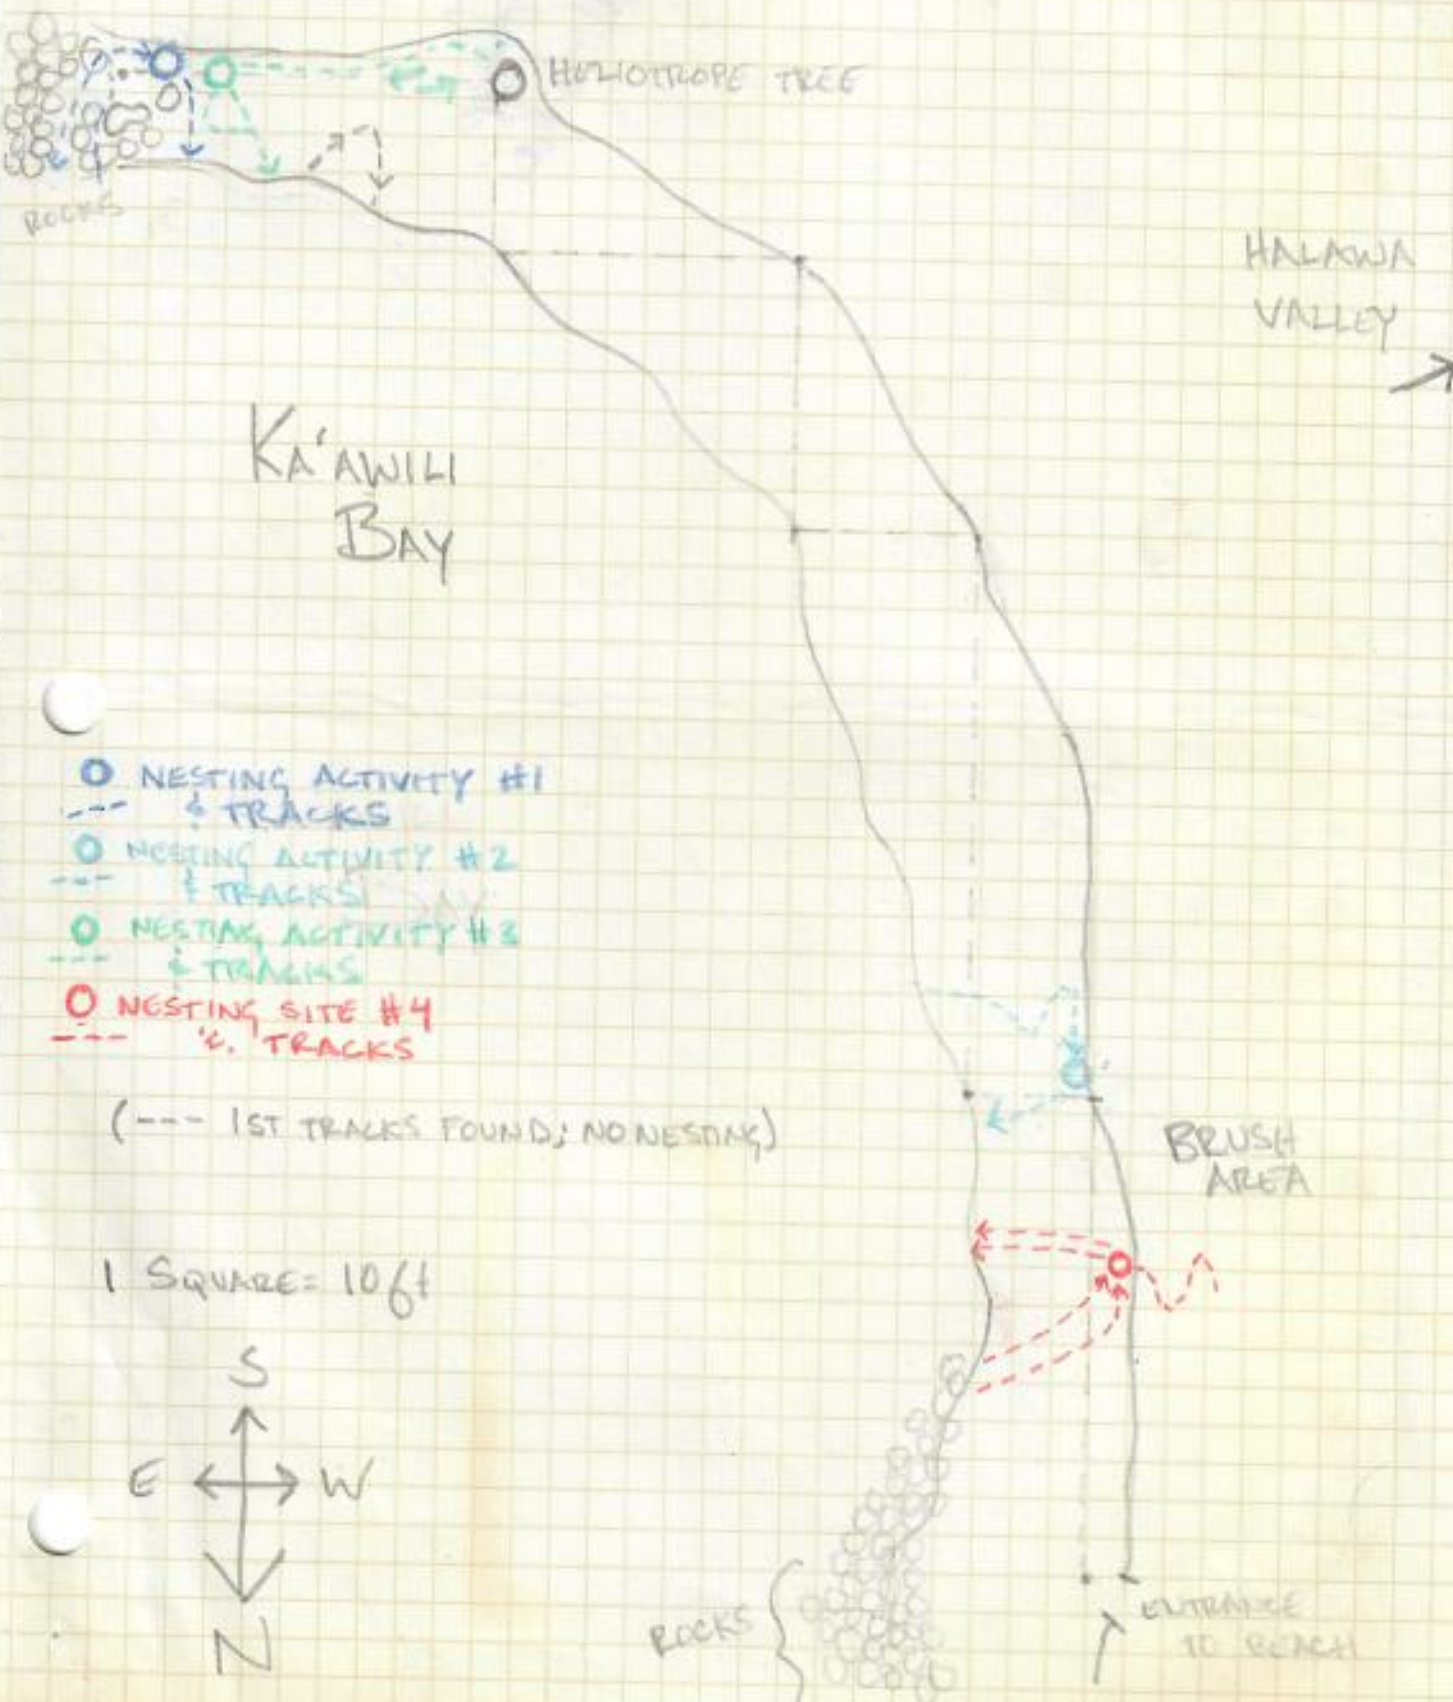 HELIOTROPE TREE
ROCKS
HALAWA
VALLEY
KA'AWILI
BAY
NESTING ACTIVITY #1
& TRACKS
NESTING ACTIVITY #2
& TRACKS
NESTING ACTIVITY #3
& TRACKS
NESTING SITE #4
& TRACKS
(--- 1ST TRACKS FOUND; NO NESTING)
BRUSH
AREA
1 SQUARE = 10ft
S
E W
N
ROCKS
ENTRANCE
TO BEACH